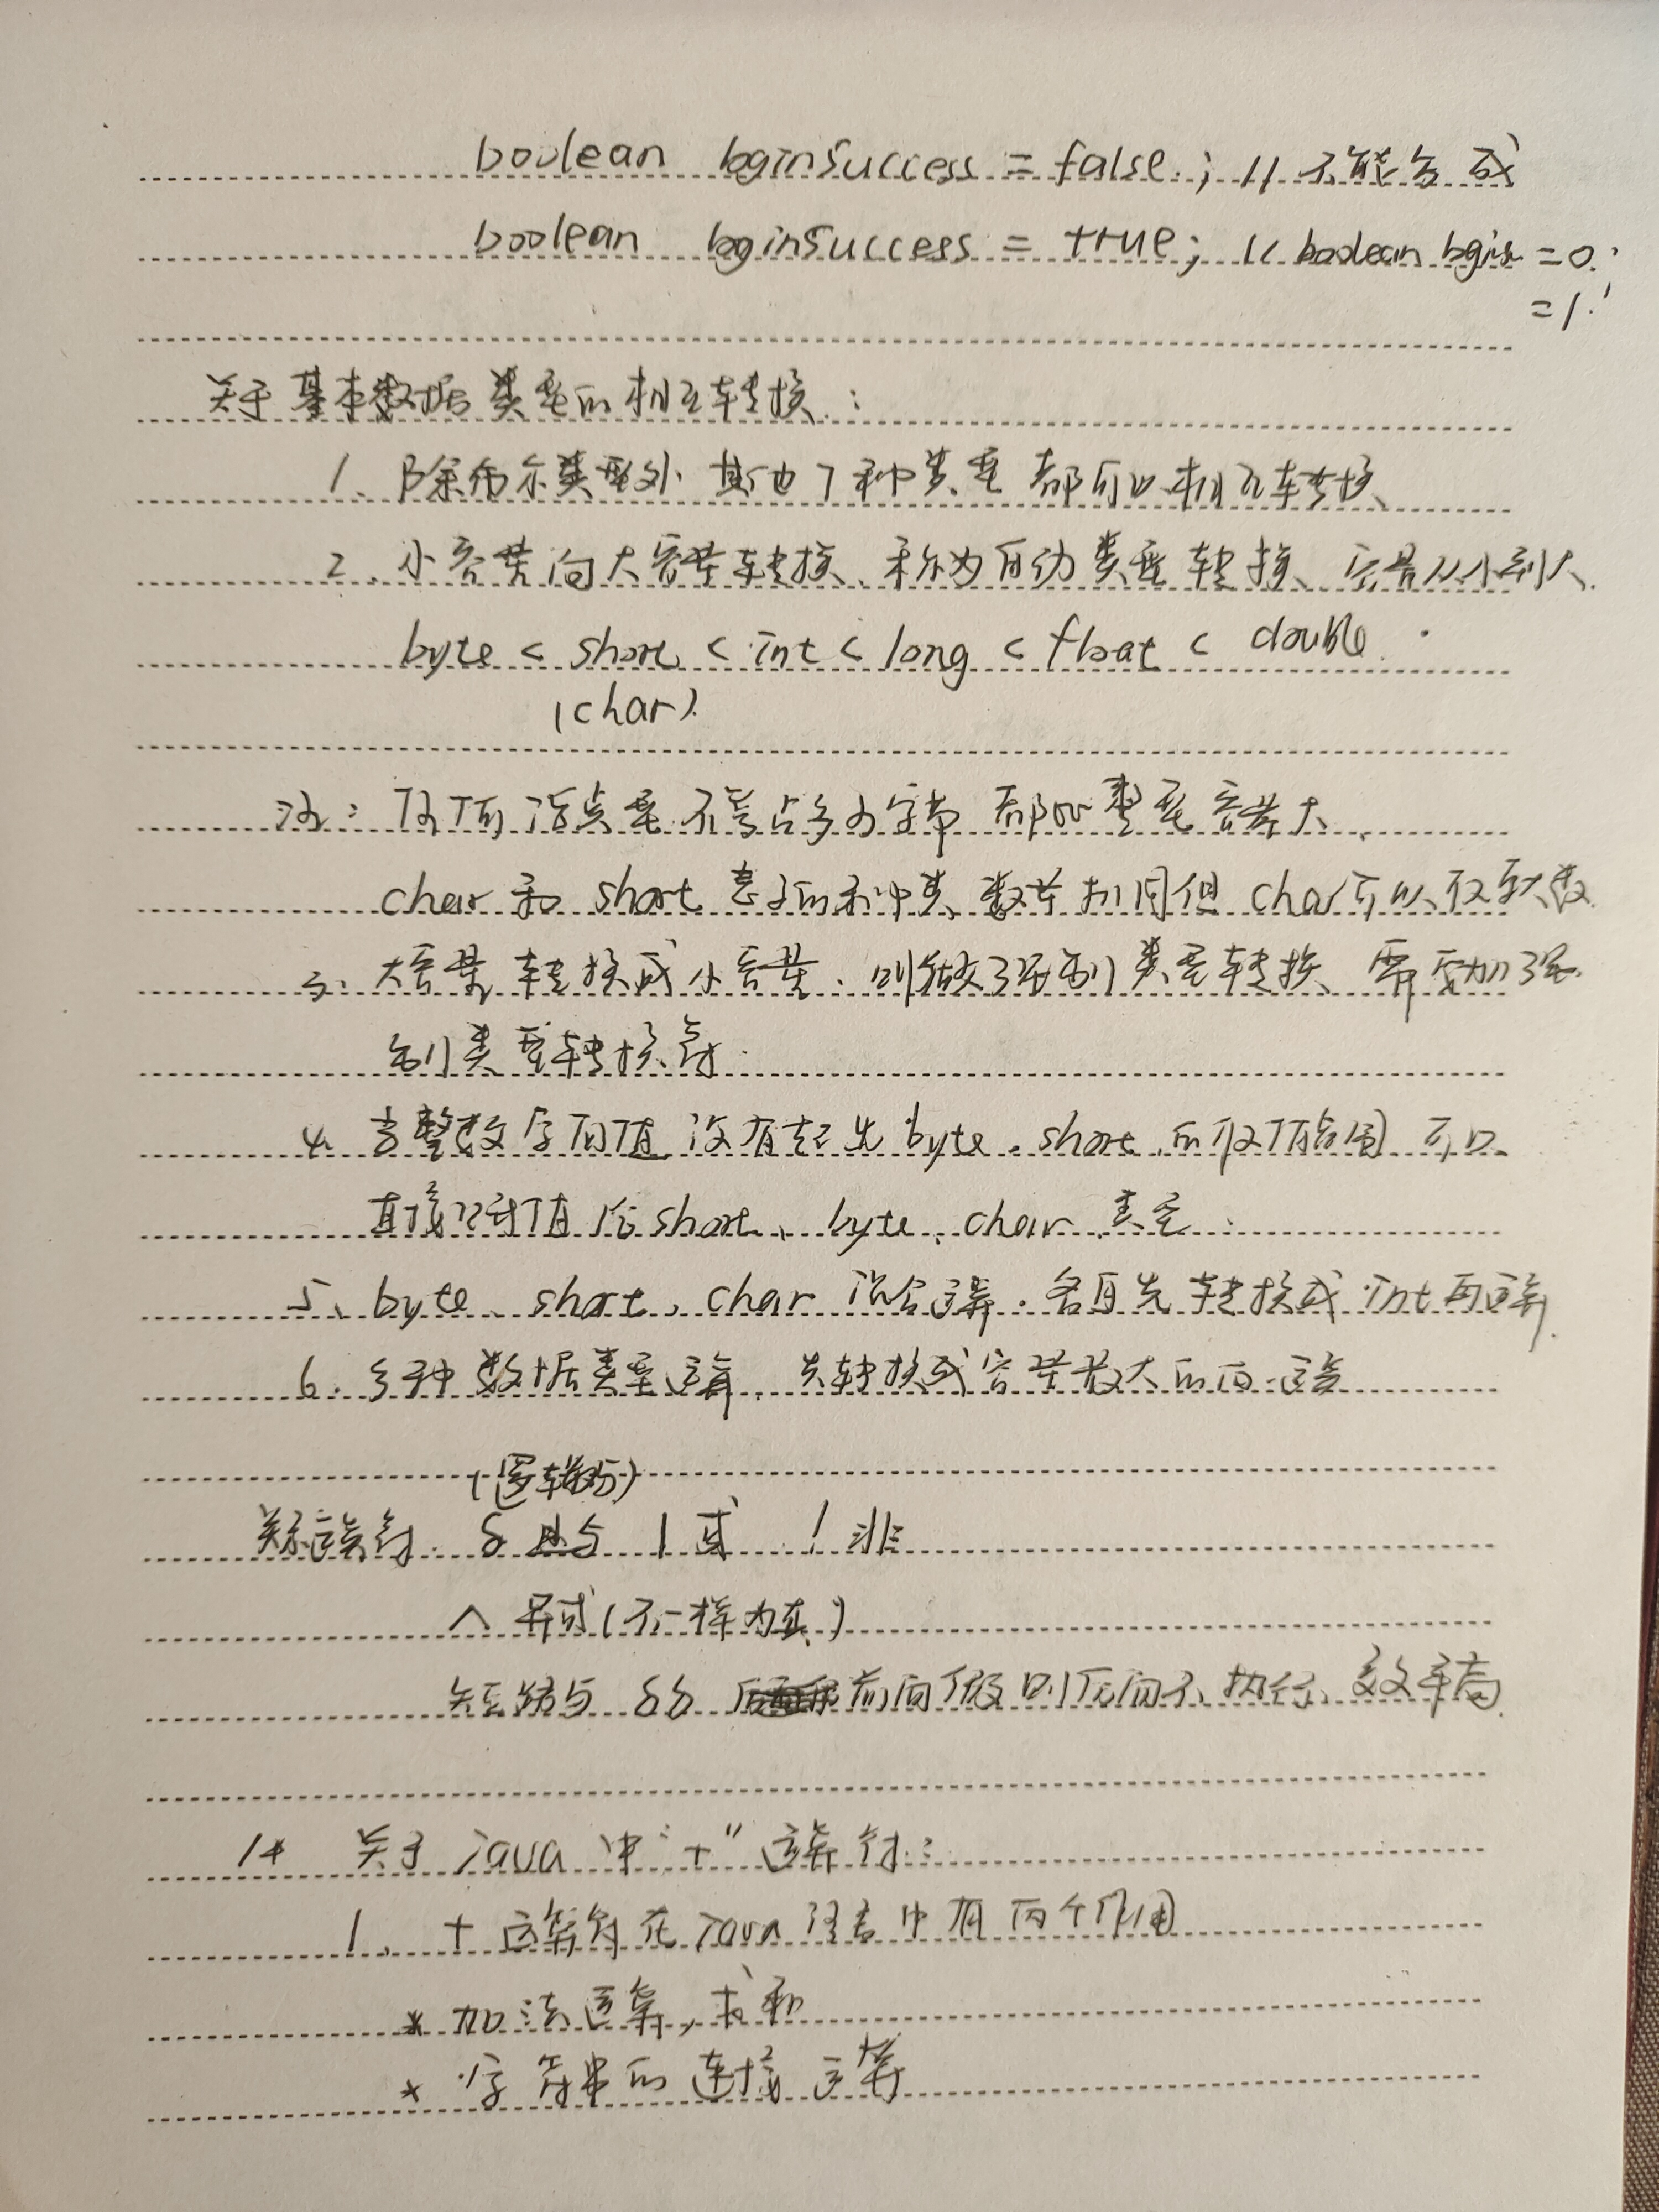 boolean loginSuccess = false; // 不能写成
boolean loginSuccess = true; // boolean login = 0;
= 1;
关于基本数据类型的相互转换:
1、除布尔类型外 其他7种类型 都可以相互转换
2、小容量向大容量转换、称为自动类型转换、容量从小到大
byte < short < int < long < float < double
(char)
注: 任何浮点型不管占多少字节 都比整型容量大
char 和 short 表示的种类数量相同但 char可以取更大数
3、大容量转换成小容量、叫做强制类型转换、需要加强
制类型转换符
4、当整数字面值没有超出 byte、short 的取值范围 可以
直接赋值给 short、byte、char 类型
5、byte、short、char 混合运算、各自先转换成 int 再运算
6、多种数据类型运算、先转换成容量最大的再运算
(逻辑)
运算符 & 与 | 或 ! 非
^ 异或(不一样为真)
短路与 && 前面假 则后面不执行、效率高
1* 关于 Java 中"+"运算符:
1、+ 运算符在 Java 语言中有两个作用
* 加法运算, 求和
* 字符串的连接运算